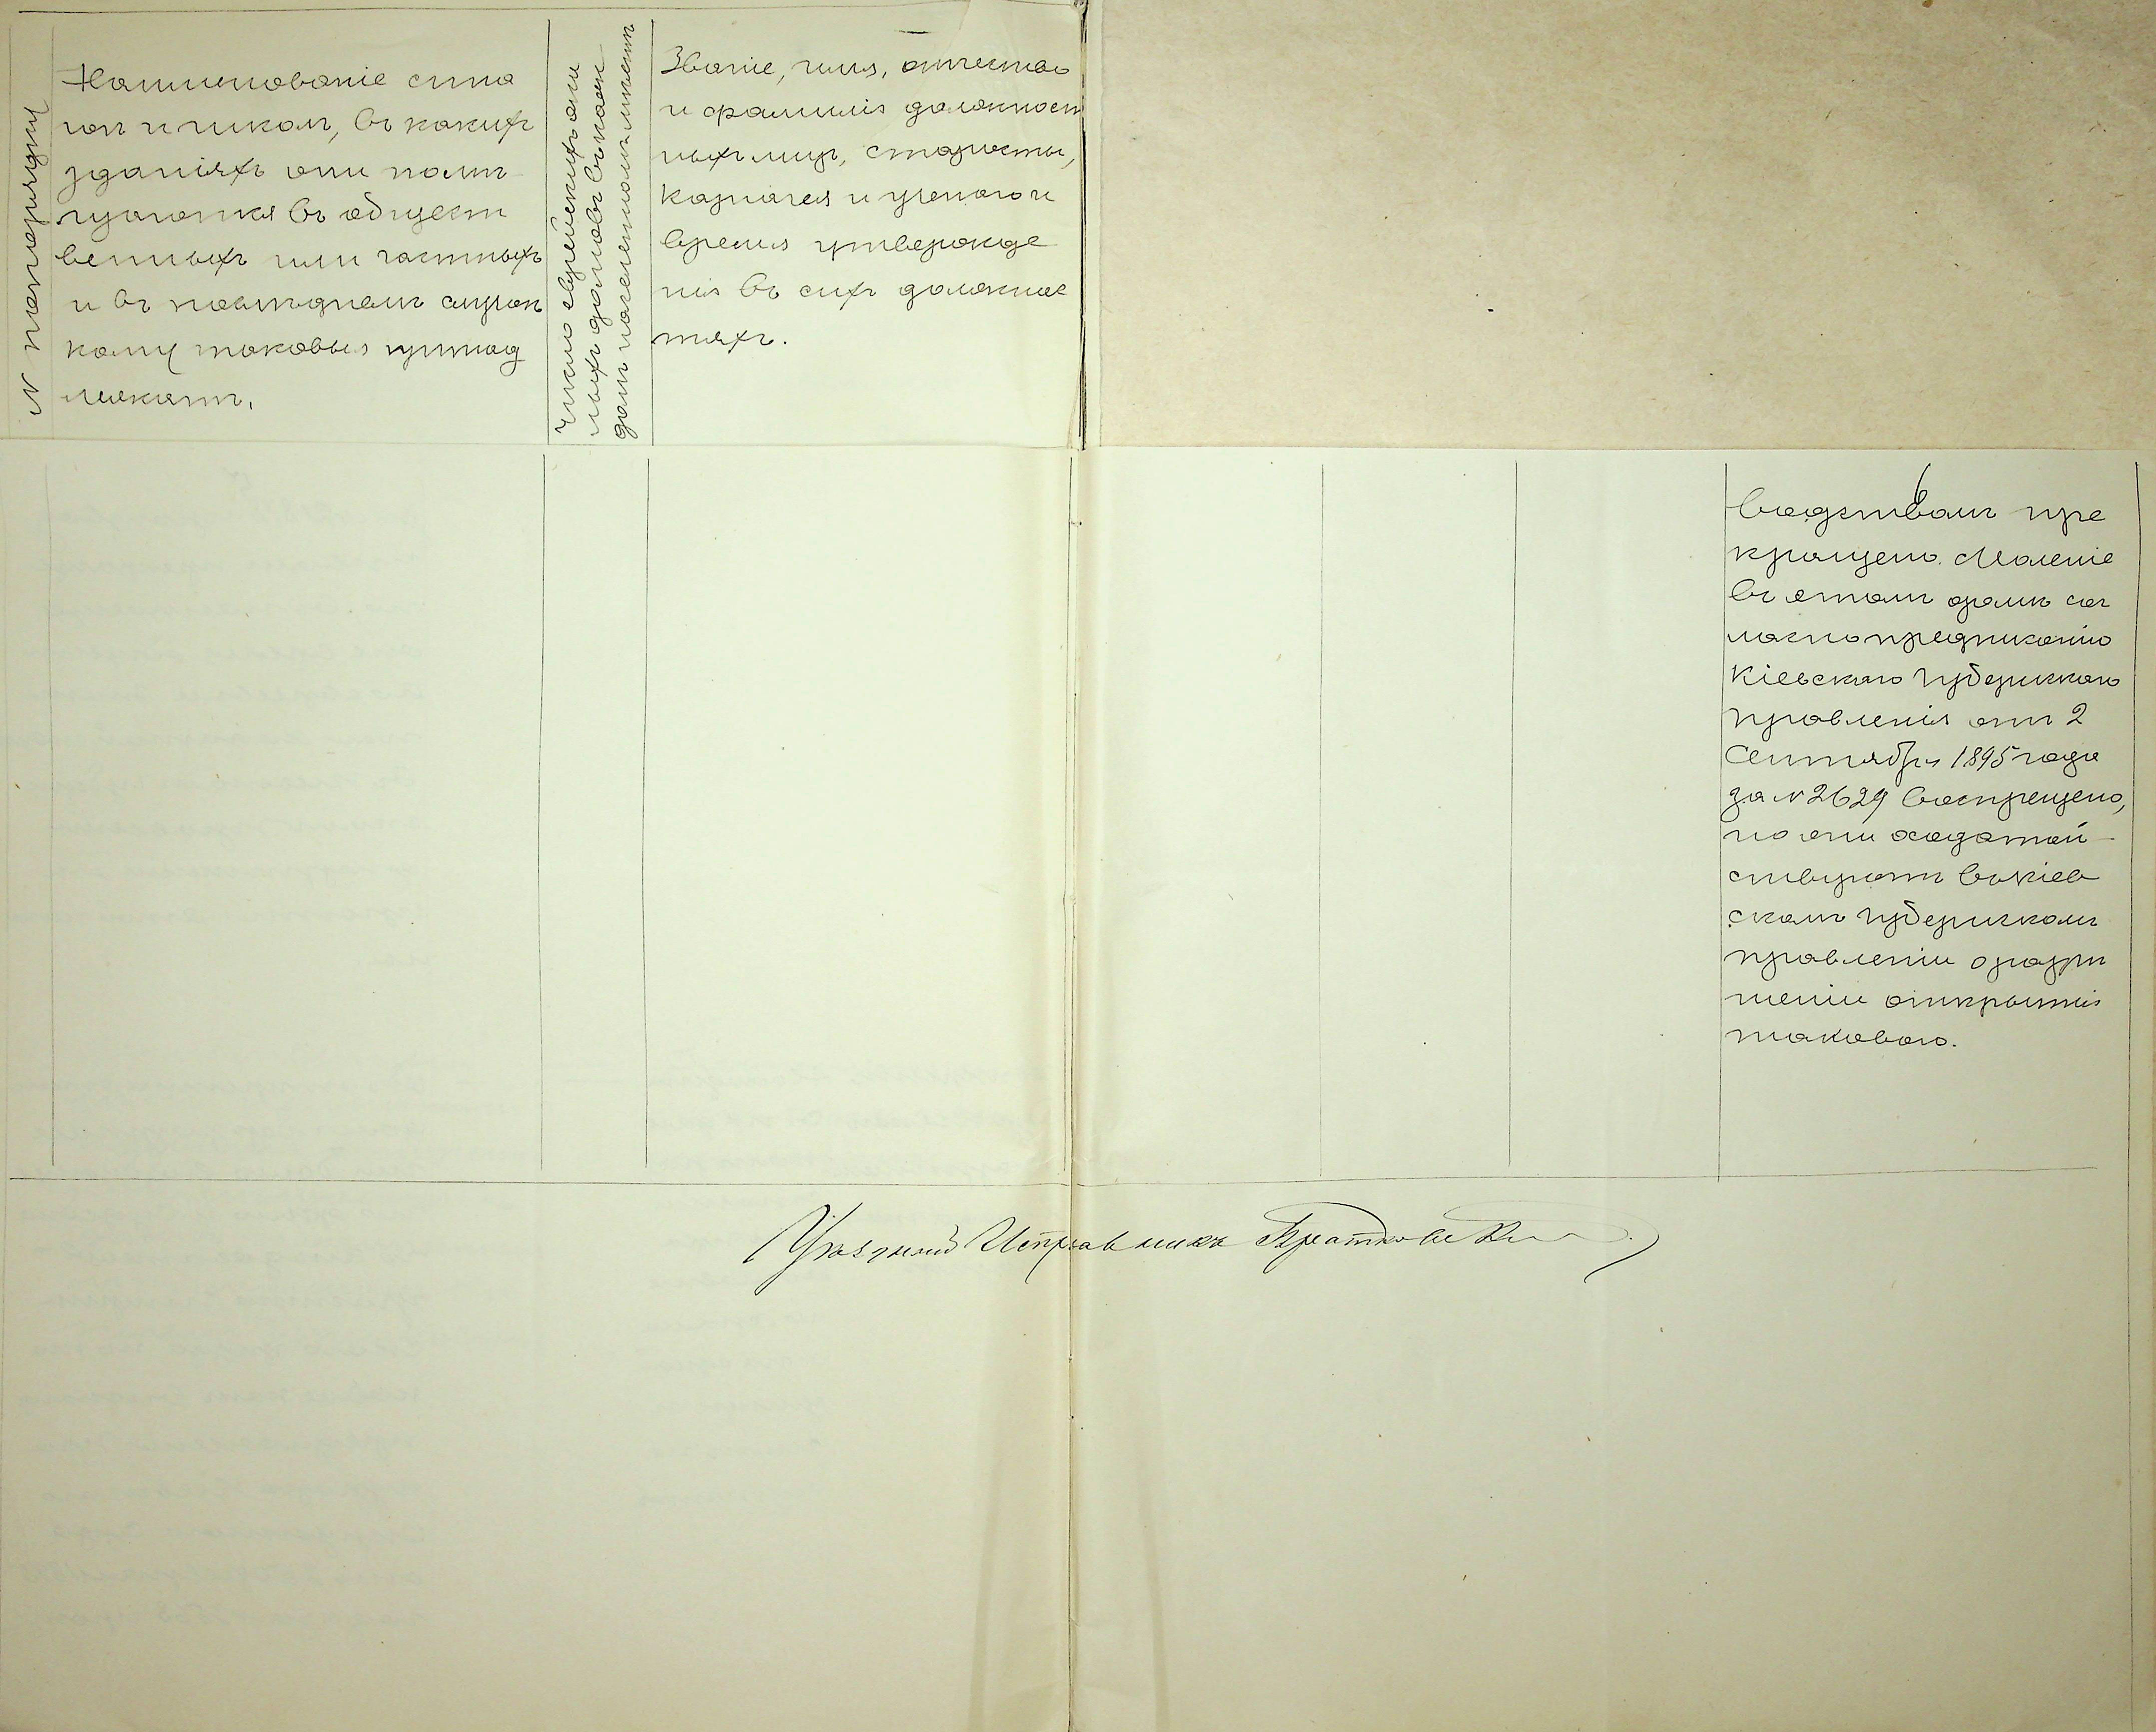 № по порядку
Наименованіе сина
гог и школ, въ какихъ
зданіяхъ они поме
щаются въ общест
венныхъ или частныхъ
и въ последнемъ случае
кому таковыя принад
лежатъ.
Число еврейскихъ
лыхъ домовъ въ каж
дом
Званіе, имя, отчество
и фамилія должност
ныхъ лицъ, старосты,
казначея и ученого и
время утвержде
нія въ сихъ должнос
тяхъ.
водствомъ пре
кращено. Моленіе
въ этомъ доме сог
ласно предписанію
Кіевскаго Губернскаго
Правленія отъ 2
Сентября 1895 года
за № 2629 воспрещено,
но они ходатай
ствуютъ въ Кіев
скомъ Губернскомъ
Правленіи о разре
шеніи открытія
таковаго.
Уездный Исправникъ